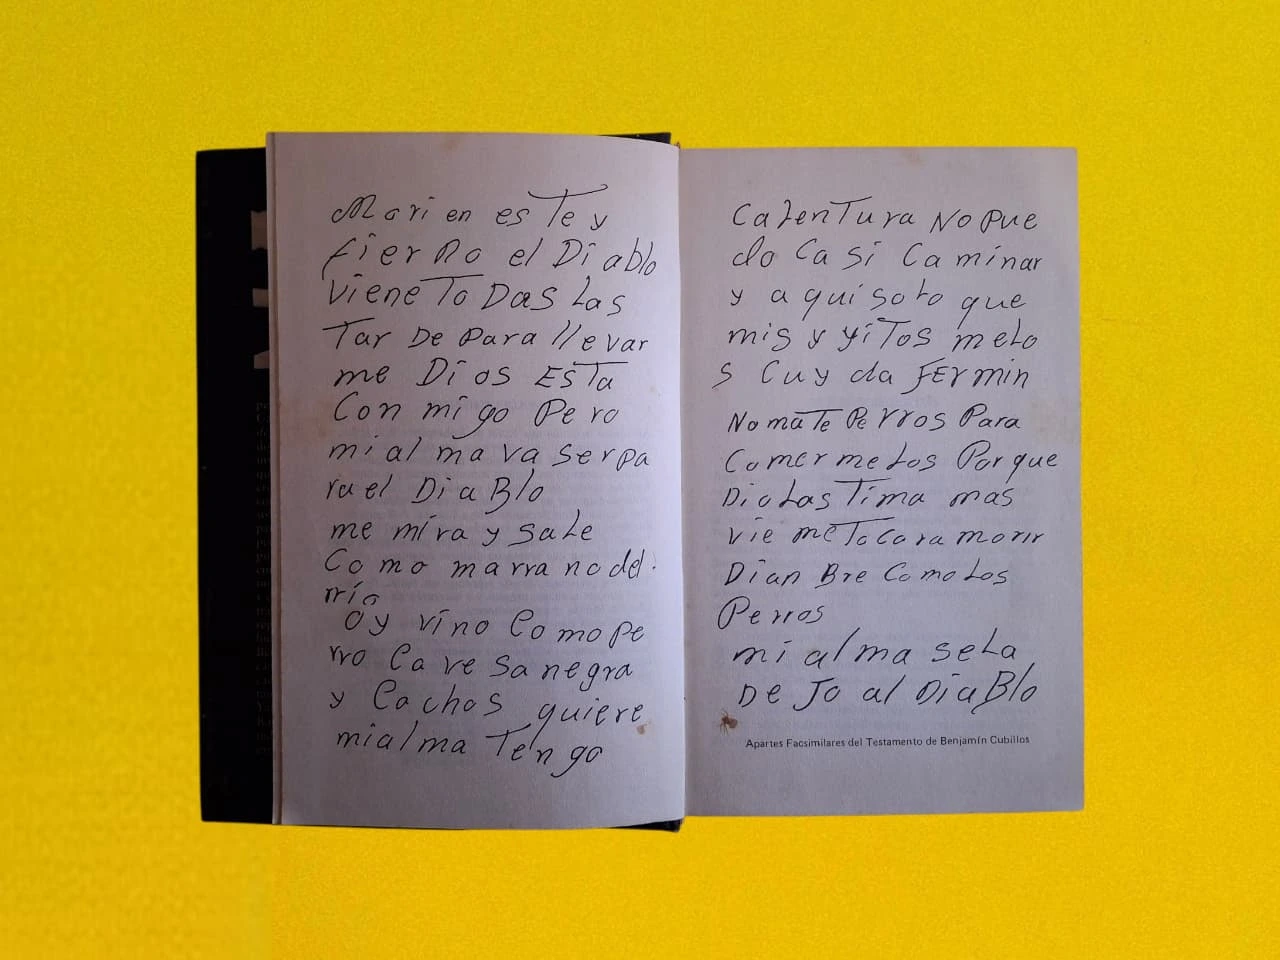 Mari en es Te y
fierno el Diablo
viene To Das Las
Tar De para llevar
me Dios ESTa
Con mi go Pero
mi al ma va ser pa
ra el DiaBlo
me mira y saLe
Co mo marra no del
río
oy vino Co mo Pe
rro Ca ve sa negra
y Cachos quiere
mi al ma Ten go
CaLenTura No Pue
do Ca si Ca minar
y a qui soLo que
mis y yiTos meLo
s Cuy da FErmin
No maTe Perros Para
Comer meLos Por que
Dio Las Tima mas
vie meTocara morir
Dian Bre ComoLos
Perros
mi al ma seLa
De Jo al DiaBlo
Apartes Facsimilares del Testamento de Benjamín Cubillos